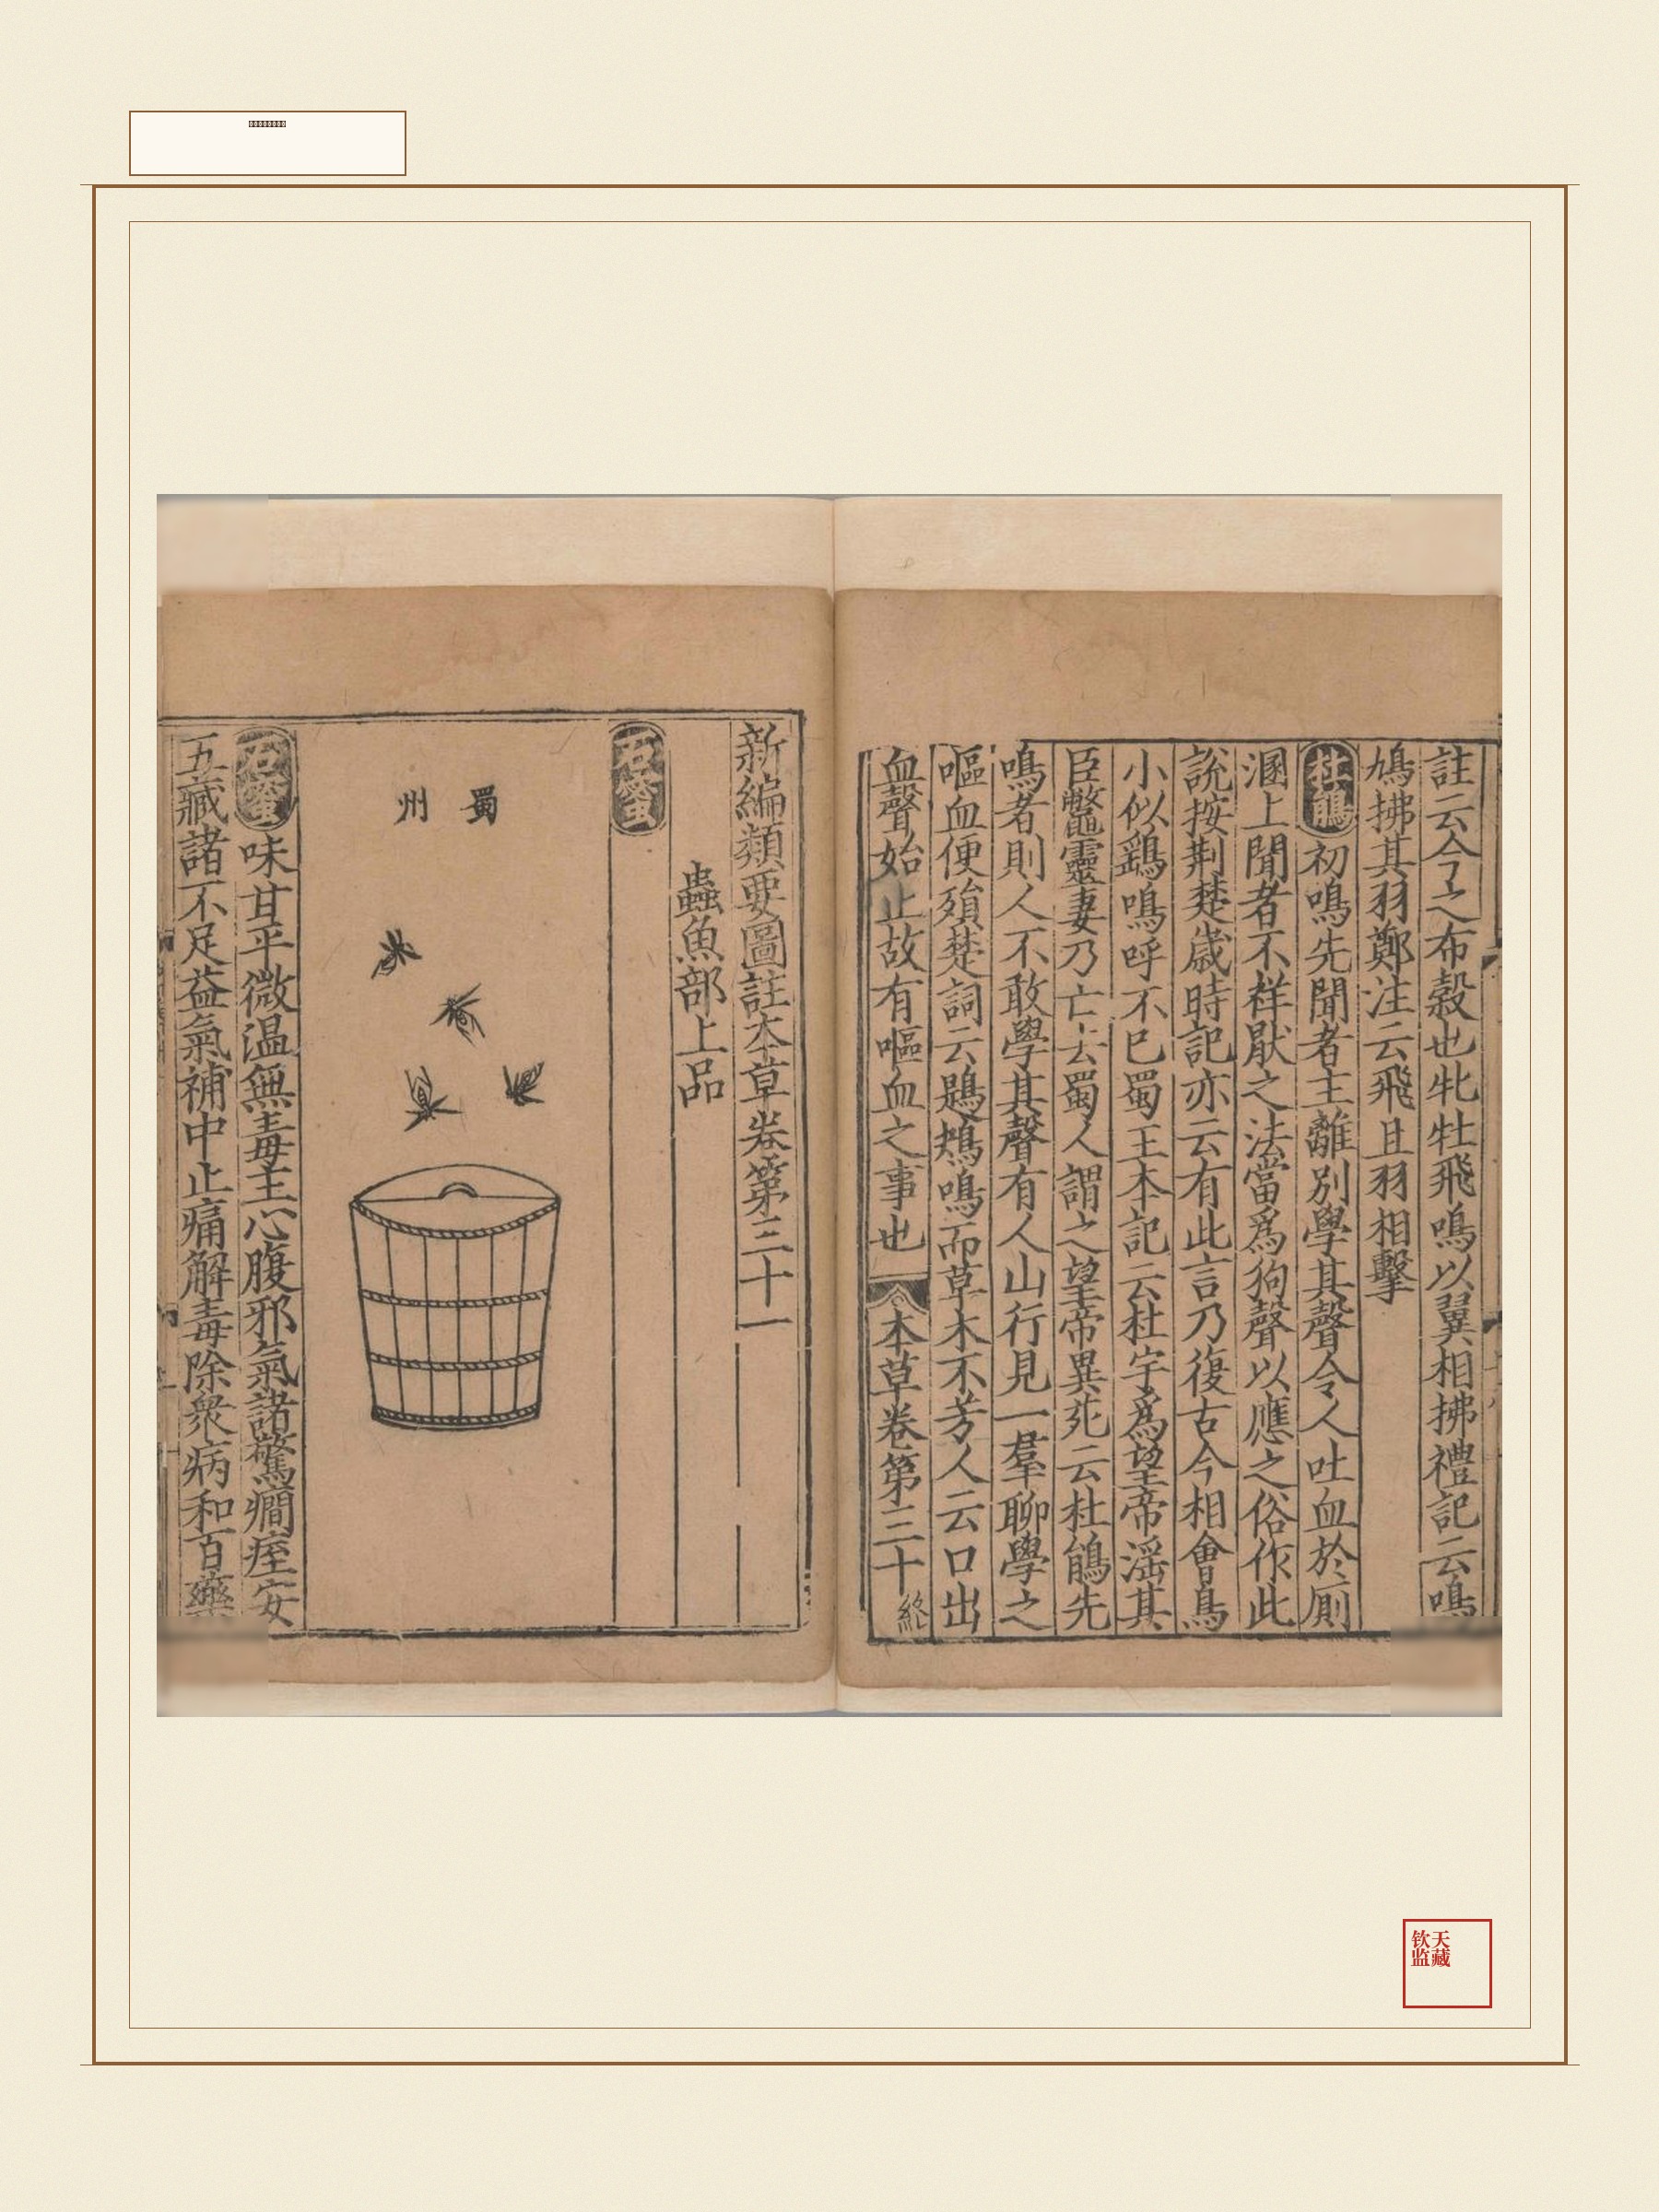 註云今之布糓也牝牡飛鳴以翼相拂禮記云鳴
鳩拂其羽鄭注云飛且羽相擊
杜鵑初鳴先聞者主離別學其聲令人吐血於厠
溷上聞者不祥猒之法當爲狗聲以應之俗作此
説按荆楚歲時記亦云有此言乃復古今相會鳥
小似鷂鳴呼不已蜀王本記云杜宇爲望帝滛其
臣鱉靈妻乃亡去蜀人謂之望帝異苑云杜鵑先
鳴者則人不敢學其聲有人山行見一羣聊學之
嘔血便殞楚詞云鶗鴂鳴而草木不芳人云口出
血聲始止故有嘔血之事也
本草卷第三十終
新編類要圖註本草卷第三十一
蟲魚部上品
石蜜
蜀州
石蜜味甘平微温無毒主心腹邪氣諸驚癎痓安
五藏諸不足益氣補中止痛解毒除衆病和百藥
钦天
监藏